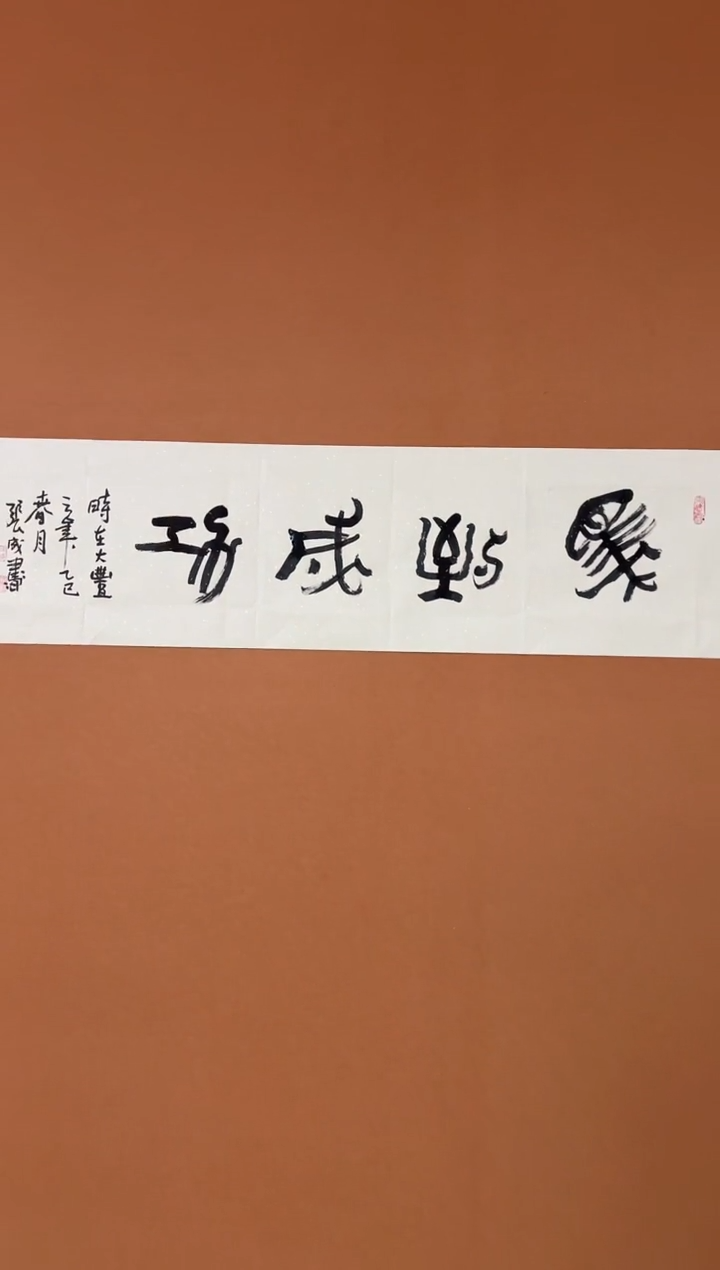 馬到成功
時在大豐
之年乙巳
春月
張成書